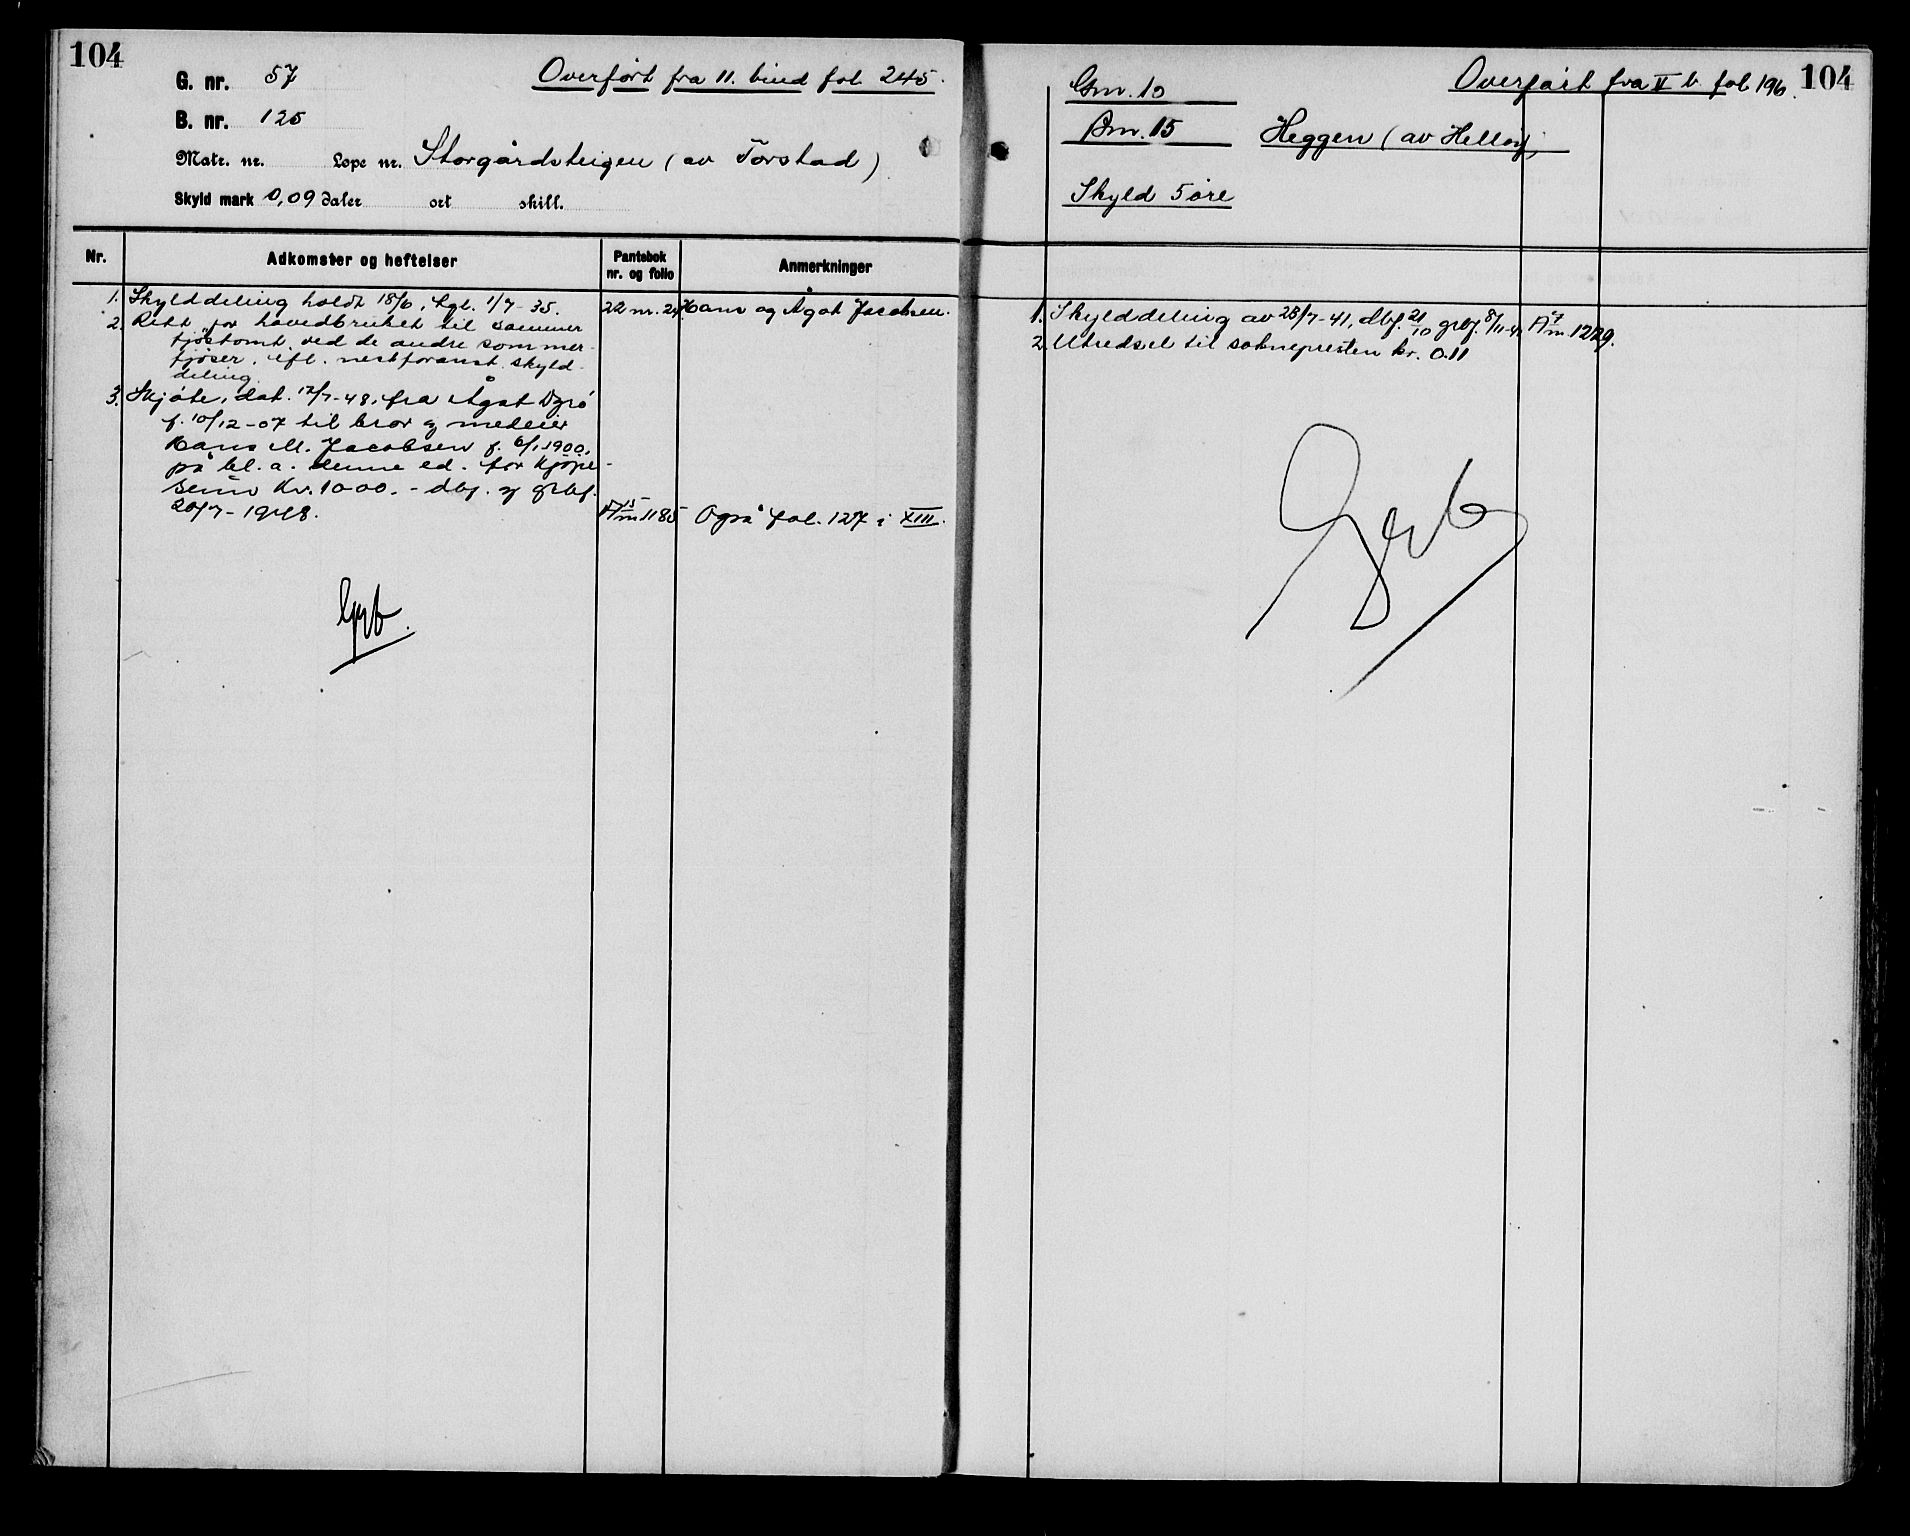 104
G. nr. 57
Overført fra 11. bind fol. 245.
B. nr. 125
Matr. nr. Løpe nr. Storgårdsteigen (av Torstad)
Skyld mark 0,09 daler ort skill.
Nr. Adkomster og heftelser Pantebok nr. og folio Anmerkninger
1. Skylddeling holdt 18/6, tgl. 1/7-35. 22 nr. 24 Hans og Ågot Jacobsen.
2. Rett for hovedbruket til sommer
fjøstomt ved de andre sommer-
fjøser, ifl. nestforanst. skyld-
deling.
3. Skjøte, dat. 17/7-48, fra Ågot Dyrø
f. 10/12-07 til bror og medeier
Hans M. Jacobsen f. 6/1 1900,
på bl. a. denne ed. for kjøpe-
sum kr. 1000.- dbf. og grbf.
20/7-1948. A15 nr 1185 Også fol. 127 i XIII.
Grb.
Overført fra V b. fol 196. 104
Gnr. 10
Bnr. 15 Heggen (av Helløy)
Skyld 5 øre
1. Skylddeling av 28/7-41, dbf. 21/10 grbf. 8/11-41 A7 nr. 1229.
2. Utredsel til soknepresten kr. 0.11
Grb